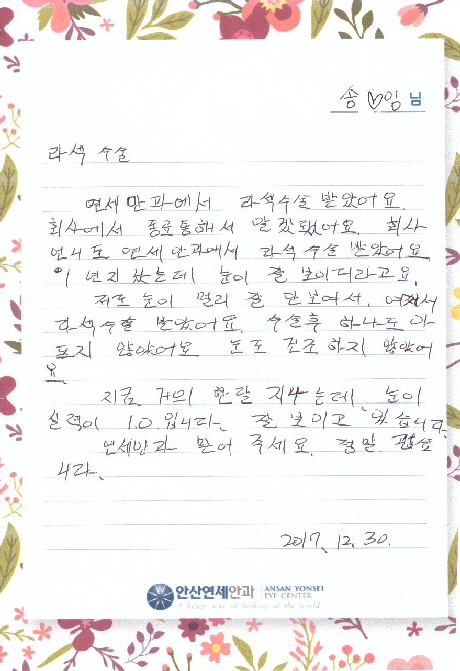 송♡임 님
라섹 수술
연세안과에서 라섹수술 받았어요.
회사에서 동료통해서 알 있었어요. 회사
언니도 연세안과에서 라섹 수술 받았어요
1년지 났는데 눈이 잘 보이더라고요.
저도 눈이 멀리 잘 안보여서,
라섹수술 받았어요. 수술후 하나도 아
프지 않았어요 눈도 건조하지 않았어
요.
지금 거의 한달 지나는데, 눈이
실력이 1.0 입니다. 잘 보이고 있습니다.
연세안과 믿어 주세요. 정말 괜
니다.
2017. 12. 30.
안산연세안과 ANSAN YONSEI
EYE CENTER
A better way of looking at the world